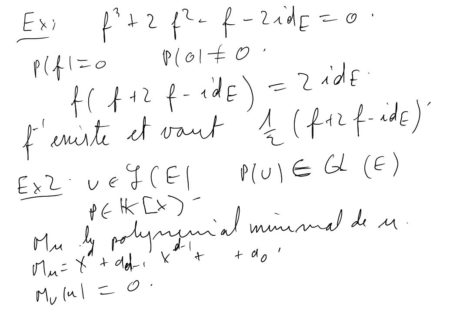 Ex1 f³ + 2 f² - f - 2 id_E = 0.
P(f) = 0 P(0) ≠ 0.
f( f + 2 f - id_E ) = 2 id_E.
f⁻¹ existe et vaut 1/2 ( f + 2 f - id_E )
Ex2 u ∈ L(E) P(u) ∈ GL (E)
P ∈ K[X]
M_u le polynomial minimal de u.
M_u = X^d + a_{d-1} X^{d-1} + + a_0,
M_u(u) = 0.